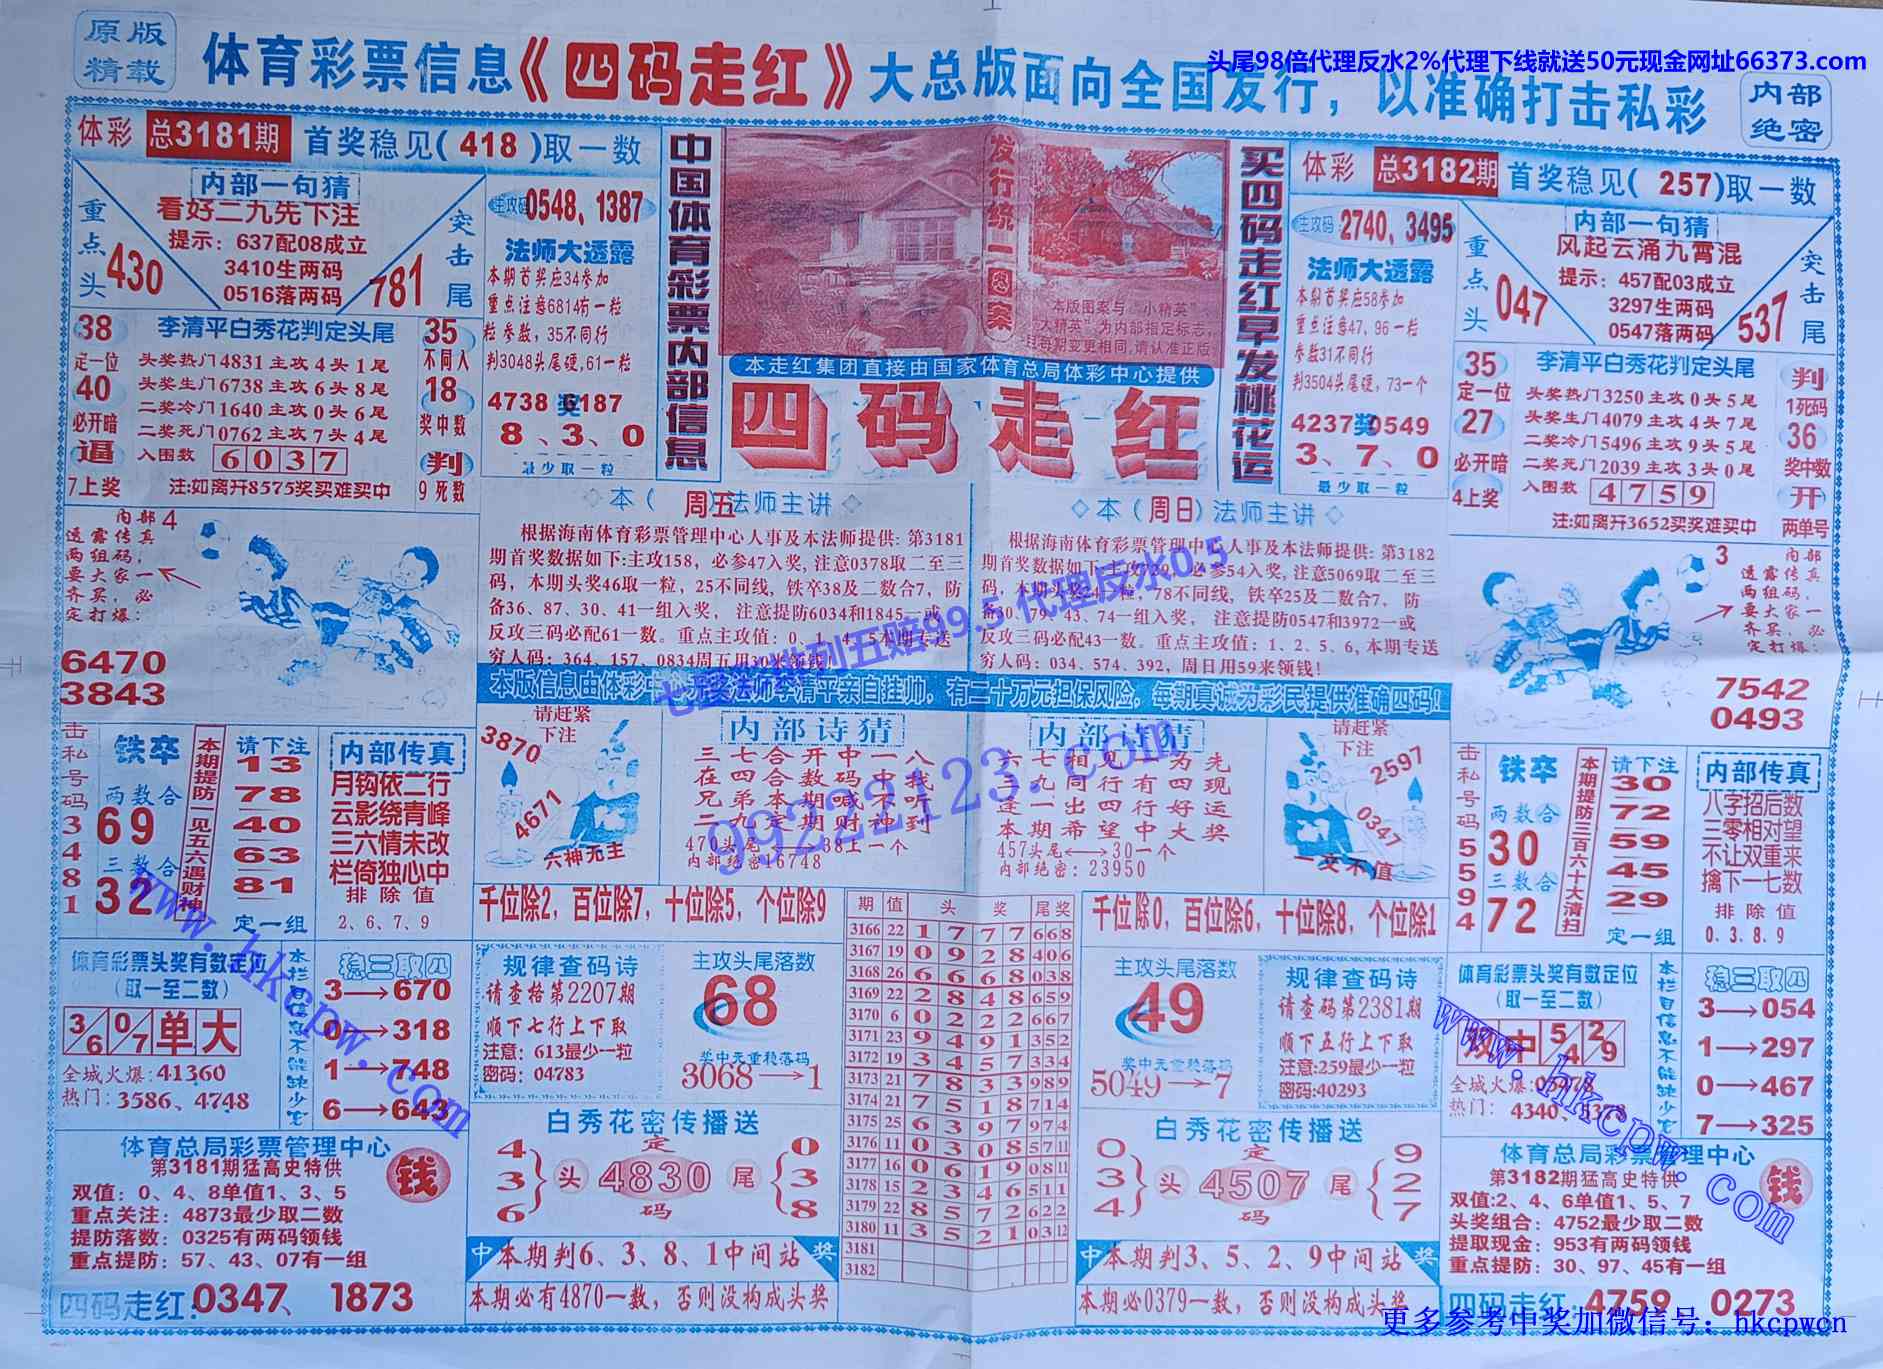 原版
精载
体育彩票信息《四码走红》大总版面向全国发行，以准确打击私彩
头尾98倍代理反水2%代理下线就送50元现金网址66373.com
内部
绝密
体彩 总3181期 首奖稳见(418)取一数
内部一句猜
看好二九先下注
提示：637配08成立
3410生两码
0516落两码
重点头
430
突击尾
781
主攻码0548、1387
法师大透露
本期首奖应34参加
重点注意6814有一粒
粒参数，35不同行
判3048头尾硬,61一粒
4738奖6187
8、3、0
最少取一粒
38
定一位
40
必开暗
逼
7上奖
李清平白秀花判定头尾
头奖热门4831主攻4头1尾
头奖生门6738主攻6头8尾
二奖冷门1640主攻0头6尾
二奖死门0762主攻7头4尾
入图数 6037
注:如离开8575奖买难买中
35
不同人
18
奖中数
判
9死数
中国体育彩票内部信息
发行统一图案
本版图案与“小精英”
“大精英”为内部指定标志，
且每期变更相同,请认准正版
本走红集团直接由国家体育总局体彩中心提供
四码走红
买四码走红早发桃花运
体彩 总3182期 首奖稳见(257)取一数
主攻码2740、3495
法师大透露
本期首奖应58参加
重点注意47、96一粒
参数31不同行
判3504头尾硬，73一个
4237奖0549
3、7、0
最少取一粒
内部一句猜
风起云涌九霄混
提示：457配03成立
3297生两码
0547落两码
重点头
047
突击尾
537
35
定一位
27
必开暗
4上奖
李清平白秀花判定头尾
头奖热门3250主攻0头5尾
头奖生门4079主攻4头7尾
二奖冷门5496主攻9头5尾
二奖死门2039主攻3头0尾
入图数 4759
注:如离开3652买奖难买中
判
1死码
36
奖中数
开
两单号
内部 4
透露传真
两组码，
要大家一
齐买，必
定打爆：
6470
3843
◇本（周五）法师主讲◇
根据海南体育彩票管理中心人事及本法师提供：第3181
期首奖数据如下:主攻158，必参47入奖，注意0378取二至三
码，本期头奖46取一粒，25不同线，铁卒38及二数合7，防
备36、87、30、41一组入奖， 注意提防6034和1845一或
反攻三码必配61一数。重点主攻值：0、1、4、5本期专送
穷人码：364、157、0834周五用30米领钱！
◇本（周日）法师主讲◇
根据海南体育彩票管理中心人事及本法师提供：第3182
期首奖数据如下:主攻729，必参54入奖,注意5069取二至三
码，本期头奖24一粒，78不同线，铁卒25及二数合7， 防
备30、79、43、74一组入奖， 注意提防0547和3972一或
反攻三码必配43一数。重点主攻值：1、2、5、6,本期专送
穷人码：034、574、392，周日用59米领钱！
3 内部
透露传真
两组码，
要大家一
齐买，必
定打爆：
7542
0493
七星排列五赔99.5 代理反水0.5
99222123.com
本版信息由体彩中心公关法师李清平亲自挂帅，有二十万元担保风险，每期真诚为彩民提供准确四码！
击私号码3481
铁卒
两数合
69
三数合
32
本期提防一见五六遇财神
请下注
13
78
40
63
81
定一组
内部传真
月钩依二行
云影绕青峰
三六情未改
栏倚独心中
排除值
2、6、7、9
请赶紧
下注
3870
4671
六神无主
内部诗猜
三七合开中一八
在四合数码中找
兄弟本期喊不听
二九定期财神到
470头尾⟷38上一个
内部绝密16748
内部诗猜
六七相见一为先
三九同行有四现
逢一出四行好运
本期希望中大奖
457头尾⟷30一个
内部绝密：23950
请赶紧
下注
2597
0347
一文不值
击私号码5594
铁卒
两数合
30
三数合
72
本期提防三百六十大清扫
请下注
30
72
59
45
29
定一组
内部传真
八字招后数
三零相对望
不让双重来
擒下一七数
排除值
0、3、8、9
千位除2，百位除7，十位除5，个位除9
千位除0，百位除6，十位除8，个位除1
体育彩票头奖有数定位
(取一至二数)
3/6 0/7 单 大
全城火爆:41360
热门：3586、4748
本栏目信息不能缺少它
稳三取四
3→670
0→318
1→748
6→643
规律查码诗
请查格第2207期
顺下七行上下取
注意：613最少一粒
密码：04783
主攻头尾落数
68
奖中无重稳落码
3068→1
期 值 头奖 尾奖
3166 22 1 7 7 7 668
3167 19 0 9 2 8 406
3168 26 6 6 6 8 038
3169 22 2 8 4 8 659
3170 6 0 2 2 2 667
3171 23 9 4 9 1 352
3172 19 3 4 5 7 334
3173 21 7 8 3 3 989
3174 21 7 5 1 8 714
3175 25 6 3 9 7 974
3176 11 0 3 0 8 5711
3177 16 0 6 1 9 0811
3178 15 2 3 4 6 511
3179 22 8 5 7 2 622
3180 11 3 5 2 1 0312
3181
3182
主攻头尾落数
49
奖中无重稳落码
5049→7
规律查码诗
请查码第2381期
顺下五行上下取
注意:259最少一粒
密码:40293
体育彩票头奖有数定位
(取一至二数)
双 中 5/4 2/9
全城火爆:05478
热门： 4340、5378
本栏目信息不能缺少它
稳三取四
3→054
1→297
0→467
7→325
体育总局彩票管理中心
第3181期猛高史特供
双值：0、4、8单值1、3、5
重点关注：4873最少取二数
提防落数：0325有两码领钱
重点提防：57、43、07有一组
钱
四码走红:0347、1873
白秀花密传播送
4 3 6
定
头 4830 尾
码
0 3 8
中 本期判6、3、8、1中间站 奖
本期必有4870一数，否则没构成头奖
白秀花密传播送
0 3 4
定
头 4507 尾
码
9 2 7
中 本期判3、5、2、9中间站 奖
本期必0379一数，否则没构成头奖
体育总局彩票管理中心
第3182期猛高史特供
双值:2、4、6单值1、5、7
头奖组合：4752最少取二数
提取现金：953有两码领钱
重点提防：30、97、45有一组
钱
四码走红:4759、0273
www.hkcpw.com
www.hkcpw.com
更多参考中奖加微信号：hkcpwcn